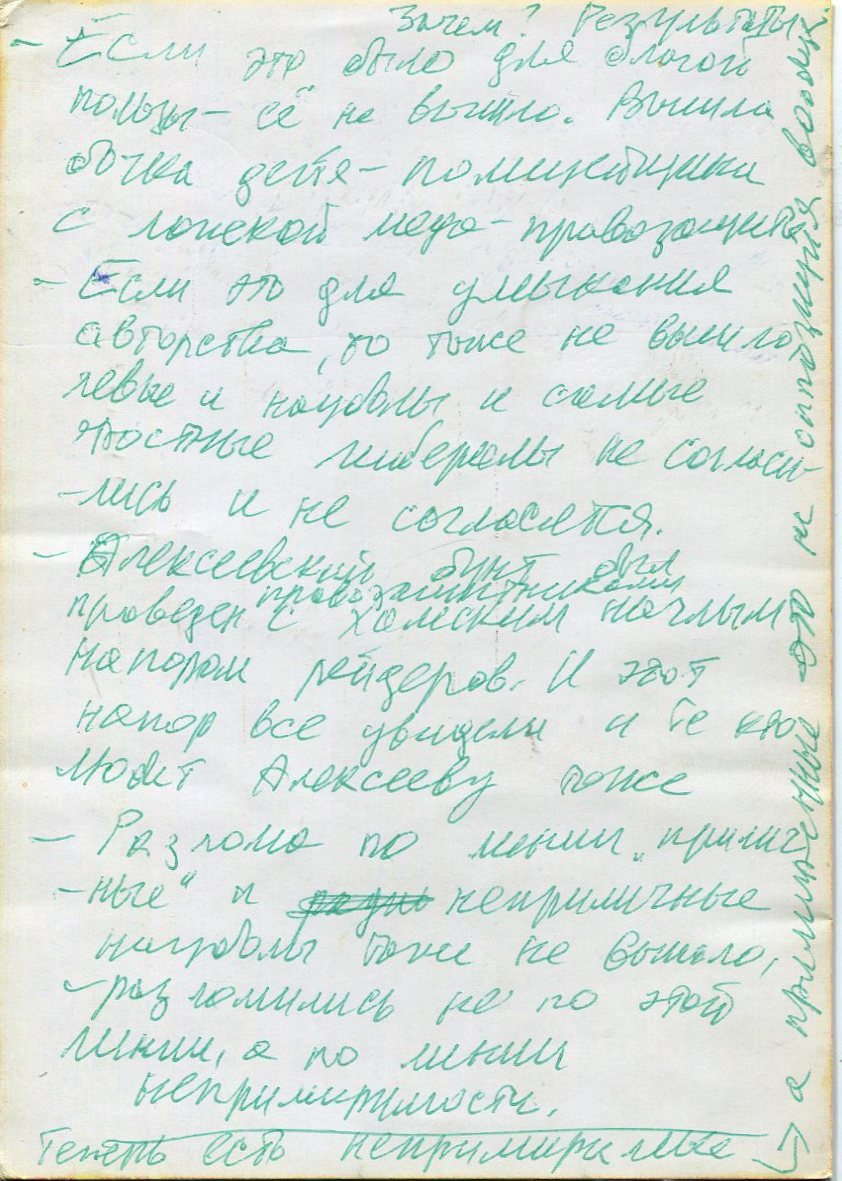 Зачем? Результаты.
- Если это было для благой
пользы - её не вышло. Вышла
бочка дегтя -
с ложкой меда - правозащиты
- Если это для умыкания
авторства, то тоже не вышло
левые и нацболы и самые
злостные либералы не согласи-
-лись и не согласятся.
- Алексеевский бунт был
правозащитниками
проведен с хамским наглым
напором рейдеров. И этот
напор все увидели и те кто
любит Алексееву тоже
- Разлома по линии "прилич-
-ные" и неприличные
нацболы тоже не вышло,
- разломились не по этой
линии, а по линии
непримиримости.
Теперь есть
→ а это не оппозиция вообще.